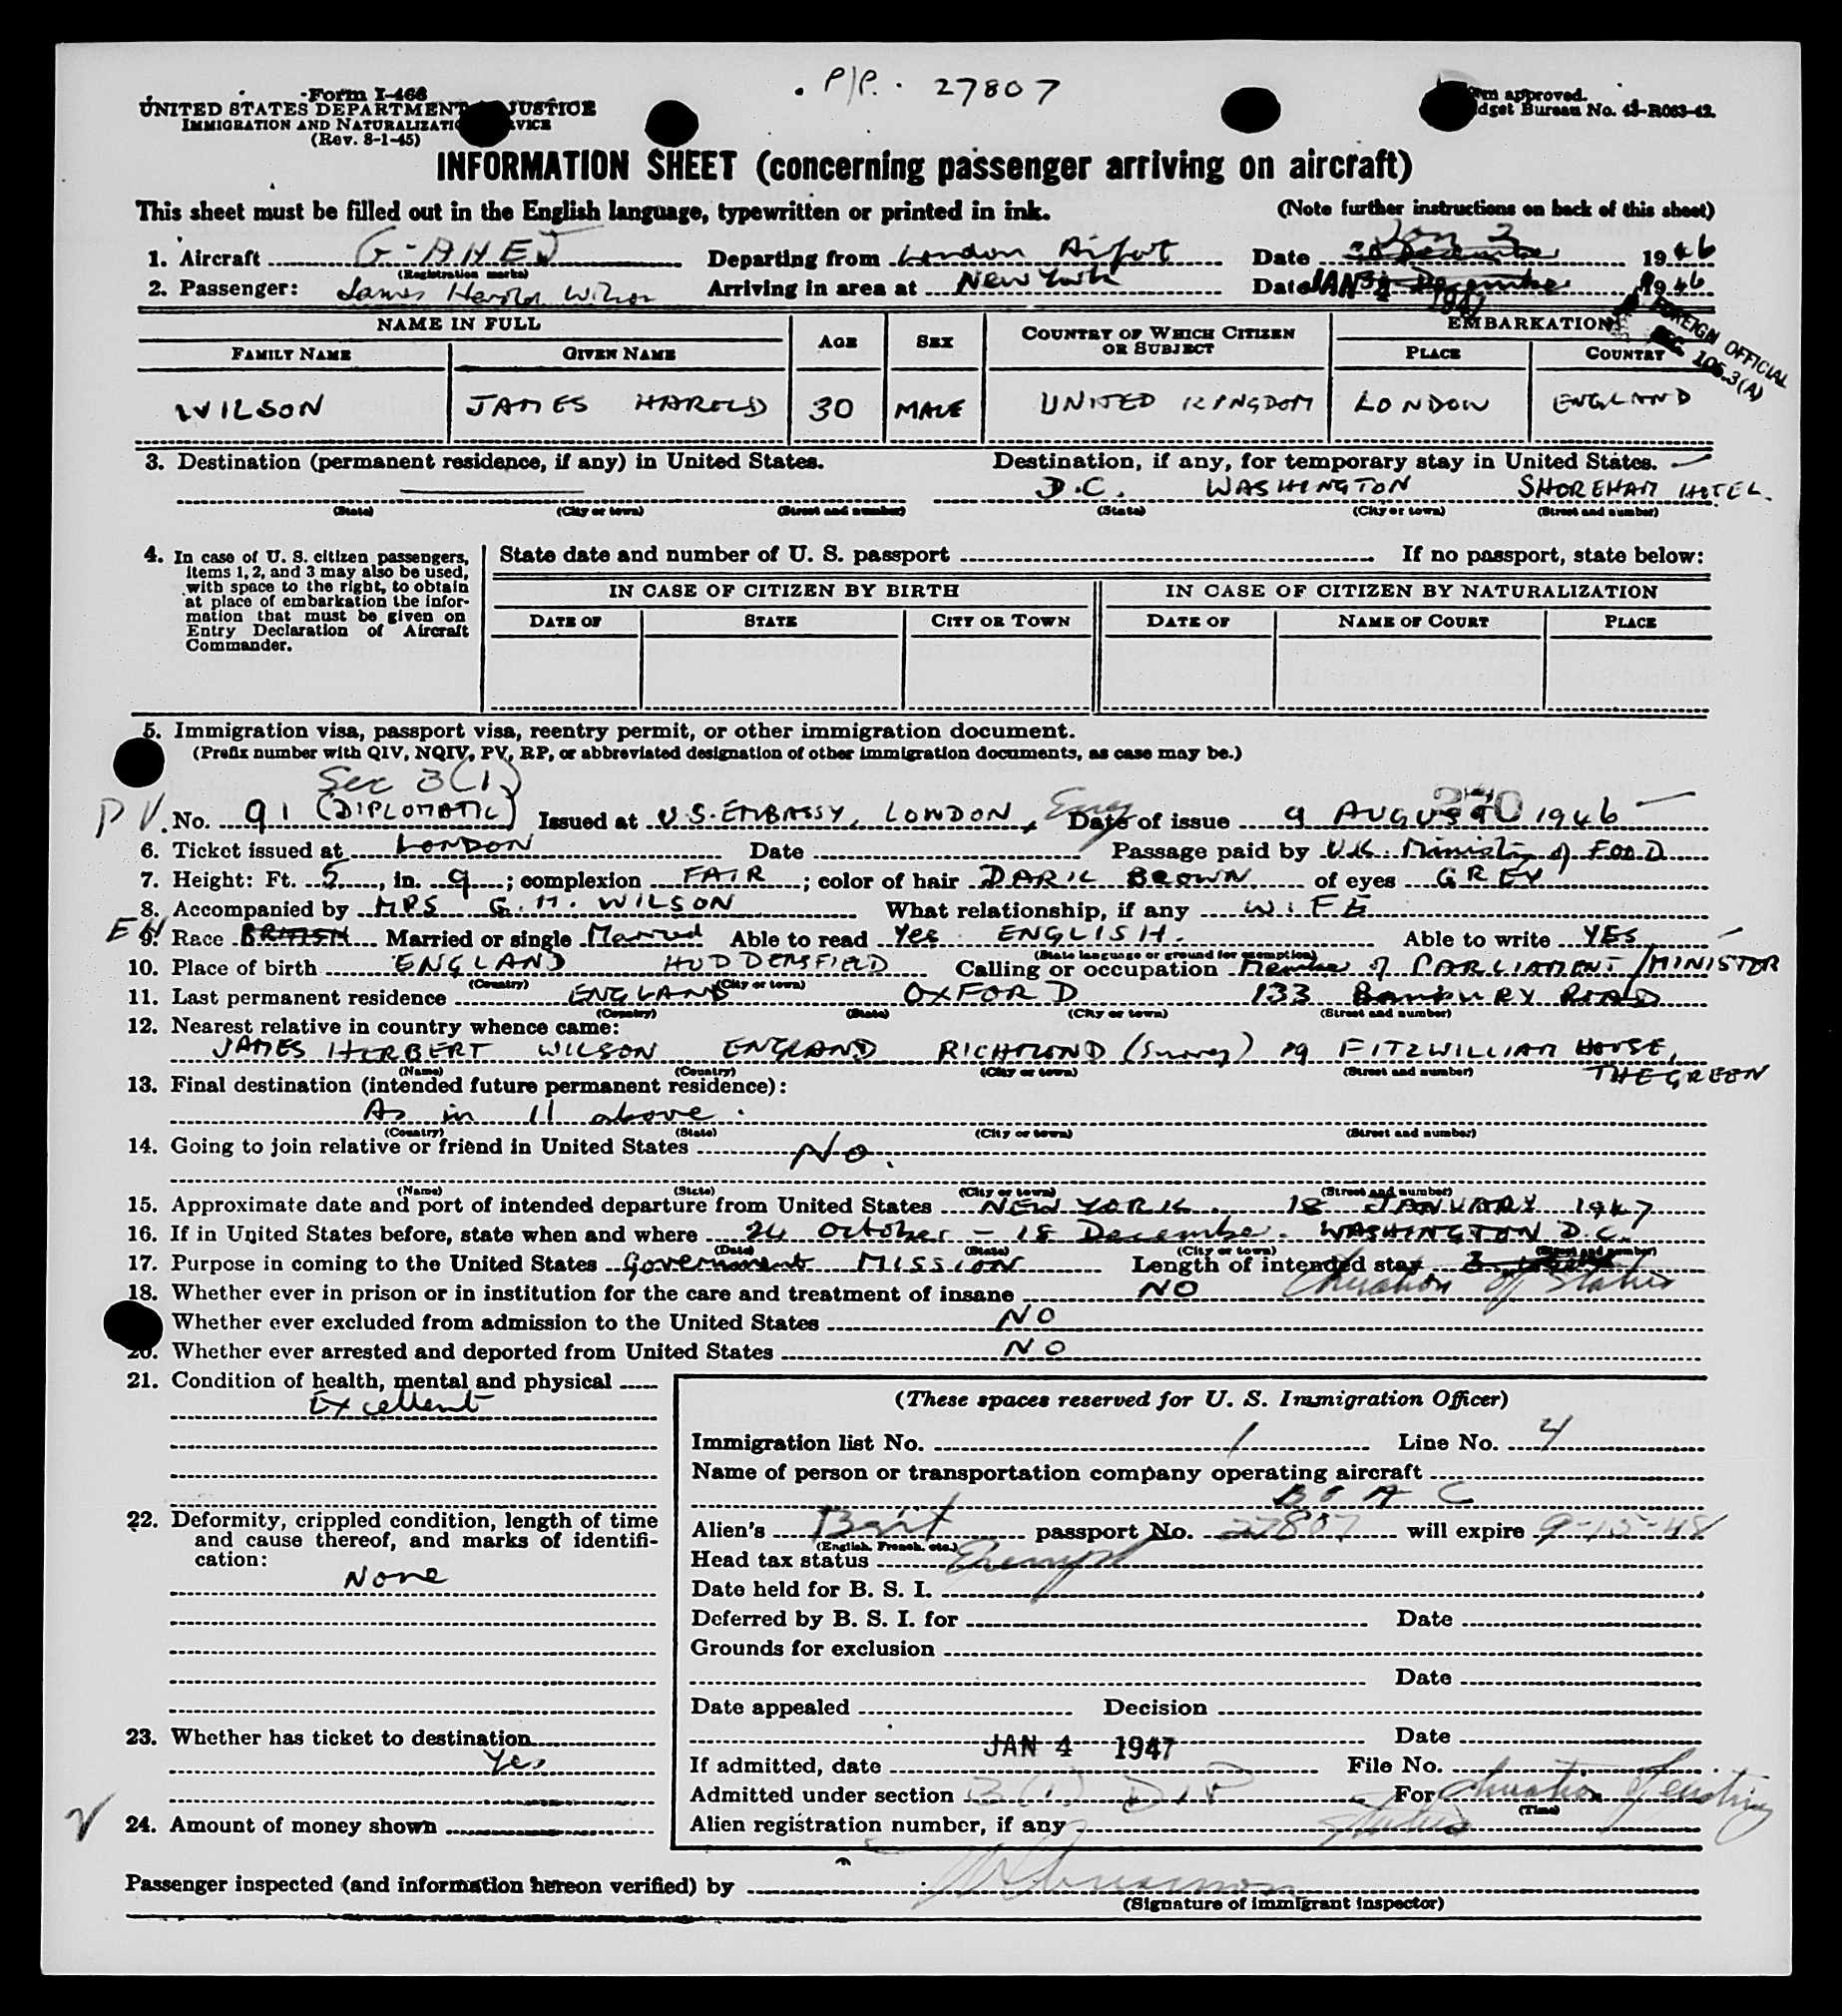 P/P. 27807
Form I-466
UNITED STATES DEPARTMENT JUSTICE
IMMIGRATION AND NATURALIZATI VICE
(Rev. 8-1-45)
rm approved.
dget Bureau No. 43-R063-42.
INFORMATION SHEET (concerning passenger arriving on aircraft)
This sheet must be filled out in the English language, typewritten or printed in ink. (Note further instructions on back of this sheet)
Jan 2
1. Aircraft G-AHEJ Departing from London Airport Date 30 December 1946
(Registration marks)
2. Passenger: James Harold Wilson Arriving in area at New York Date JAN 4 1947 December 1946
NAME IN FULL AGE SEX COUNTRY OF WHICH CITIZEN OR SUBJECT EMBARKATION
FAMILY NAME GIVEN NAME PLACE COUNTRY
FOREIGN OFFICIAL
SEC. 105.3(A)
WILSON JAMES HAROLD 30 MALE UNITED KINGDOM LONDON ENGLAND
3. Destination (permanent residence, if any) in United States. Destination, if any, for temporary stay in United States.
D.C. WASHINGTON SHOREHAM HOTEL.
(State) (City or town) (Street and number) (State) (City or town) (Street and number)
4. In case of U. S. citizen passengers, items 1, 2, and 3 may also be used, with space to the right, to obtain at place of embarkation the information that must be given on Entry Declaration of Aircraft Commander.
State date and number of U. S. passport If no passport, state below:
IN CASE OF CITIZEN BY BIRTH IN CASE OF CITIZEN BY NATURALIZATION
DATE OF STATE CITY OR TOWN DATE OF NAME OF COURT PLACE
5. Immigration visa, passport visa, reentry permit, or other immigration document.
(Prefix number with QIV, NQIV, PV, RP, or abbreviated designation of other immigration documents, as case may be.)
Sec 3(1)
PV. No. 91 (DIPLOMATIC) Issued at U.S. EMBASSY, LONDON, Eng Date of issue 9 AUGUST 1946
6. Ticket issued at LONDON Date Passage paid by U.K. Ministry of FOOD
7. Height: Ft. 5, in. 9; complexion FAIR; color of hair DARK BROWN of eyes GREY
8. Accompanied by MRS G.M. WILSON What relationship, if any WIFE
EN 9. Race BRITISH Married or single Married Able to read Yes ENGLISH. Able to write YES
(State language or ground for exemption)
10. Place of birth ENGLAND HUDDERSFIELD Calling or occupation Member of PARLIAMENT/MINISTER
(Country) (City or town)
11. Last permanent residence ENGLAND OXFORD 133 BANBURY ROAD
(Country) (State) (City or town) (Street and number)
12. Nearest relative in country whence came:
JAMES HERBERT WILSON ENGLAND RICHMOND (Surrey) 19 FITZWILLIAM HOUSE,
THE GREEN
(Name) (Country) (City or town) (Street and number)
13. Final destination (intended future permanent residence):
As in 11 above.
(Country) (State) (City or town) (Street and number)
14. Going to join relative or friend in United States No.
(Name) (State) (City or town) (Street and number)
15. Approximate date and port of intended departure from United States NEW YORK. 18 JANUARY 1947
16. If in United States before, state when and where 24 October - 18 December. WASHINGTON D.C.
(Date) (State) (City or town) (Street and number)
17. Purpose in coming to the United States Government MISSION Length of intended stay 3
Duration of Status
18. Whether ever in prison or in institution for the care and treatment of insane NO
Whether ever excluded from admission to the United States NO
20. Whether ever arrested and deported from United States NO
21. Condition of health, mental and physical
Excellent
22. Deformity, crippled condition, length of time and cause thereof, and marks of identification:
None
23. Whether has ticket to destination
Yes
24. Amount of money shown
(These spaces reserved for U. S. Immigration Officer)
Immigration list No. 1 Line No. 4
Name of person or transportation company operating aircraft
B O A C
Alien's Brit passport No. 27807 will expire 9-15-48
(English, French, etc.)
Head tax status Exempt
Date held for B. S. I.
Deferred by B. S. I. for Date
Grounds for exclusion
Date
Date appealed Decision
Date
JAN 4 1947
If admitted, date File No.
Admitted under section 3(1) DIP For duration of existing
(Time)
status
Alien registration number, if any
Passenger inspected (and information hereon verified) by
(Signature of immigrant inspector)